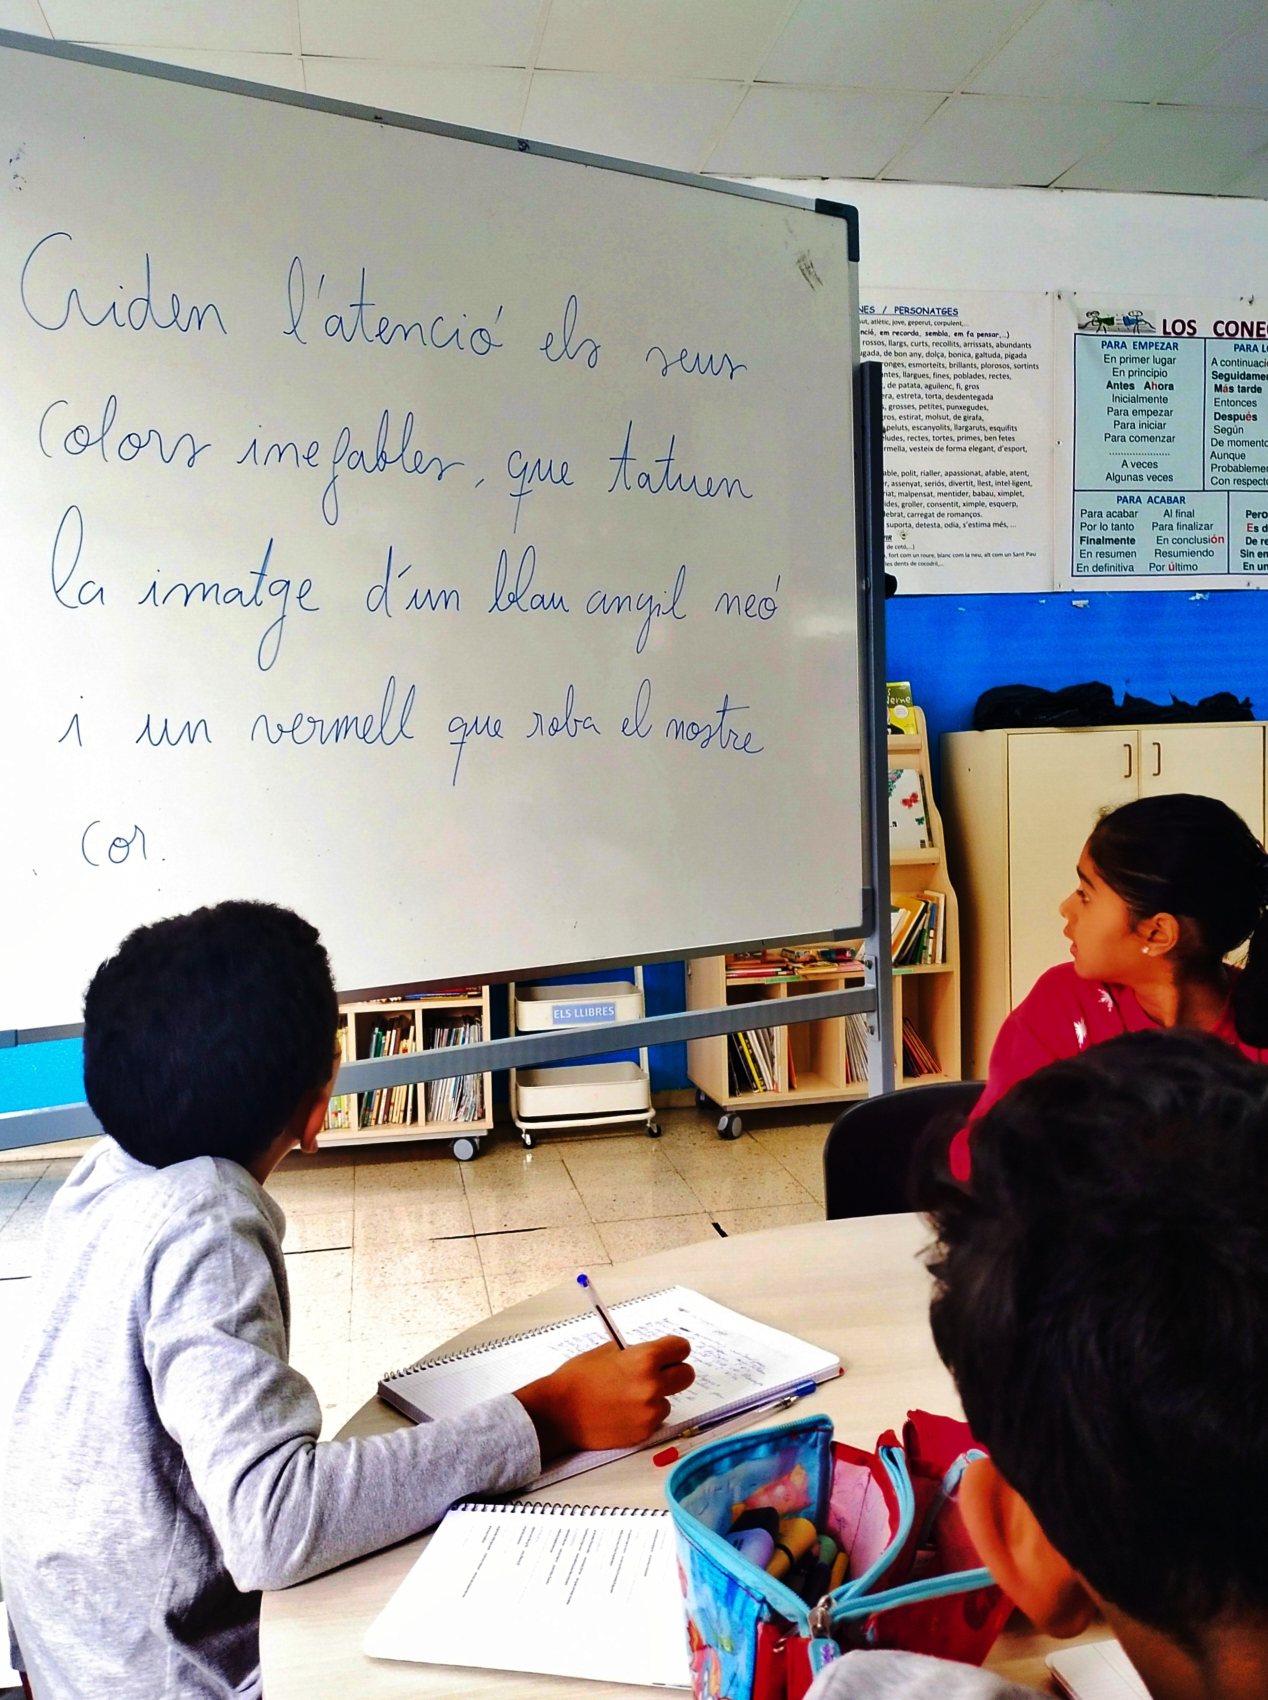 Criden l'atenció els seus
colors inefables, que tatuen
la imatge d'un blau angil neó
i un vermell que roba el nostre
cor.
NES / PERSONATGES
atlètic, jove, geperut, corpulent,...
em recorda, sembla, em fa pensar,...)
rossos, llargs, curts, recollits, arrissats, abundants
de bon any, dolça, bonica, galtuda, pigada
esmorteïts, brillants, plorosos, sortints
llargues, fines, poblades, rectes,
de patata, aguilenc, fi, gros
estreta, torta, desdentegada
grosses, petites, punxegudes,
estirat, molsut, de girafa,
peluts, escanyolits, llargaruts, esquifits
rectes, tortes, primes, ben fetes
vesteix de forma elegant, d'esport,
polit, rialler, apassionat, afable, atent,
assenyat, seriós, divertit, llest, intel·ligent,
malpensat, mentider, babau, ximplet,
groller, consentit, ximple, esquerp,
carregat de romanços.
suporta, detesta, odia, s'estima més, ...
de cotó,...)
fort com un roure, blanc com la neu, alt com un Sant Pau
les dents de cocodril,...
LOS CONE
PARA EMPEZAR
En primer lugar
En principio
Antes Ahora
Inicialmente
Para empezar
Para iniciar
Para comenzar
....................
A veces
Algunas veces
PARA ACABAR
Para acabar Al final
Por lo tanto Para finalizar
Finalmente En conclusión
En resumen Resumiendo
En definitiva Por último
PARA
A continuació
Seguidame
Más tarde
Entonces
Después
Según
De momento
Aunque
Probableme
Con respect
Pero
Es d
De re
Sin em
En un
ELS LLIBRES